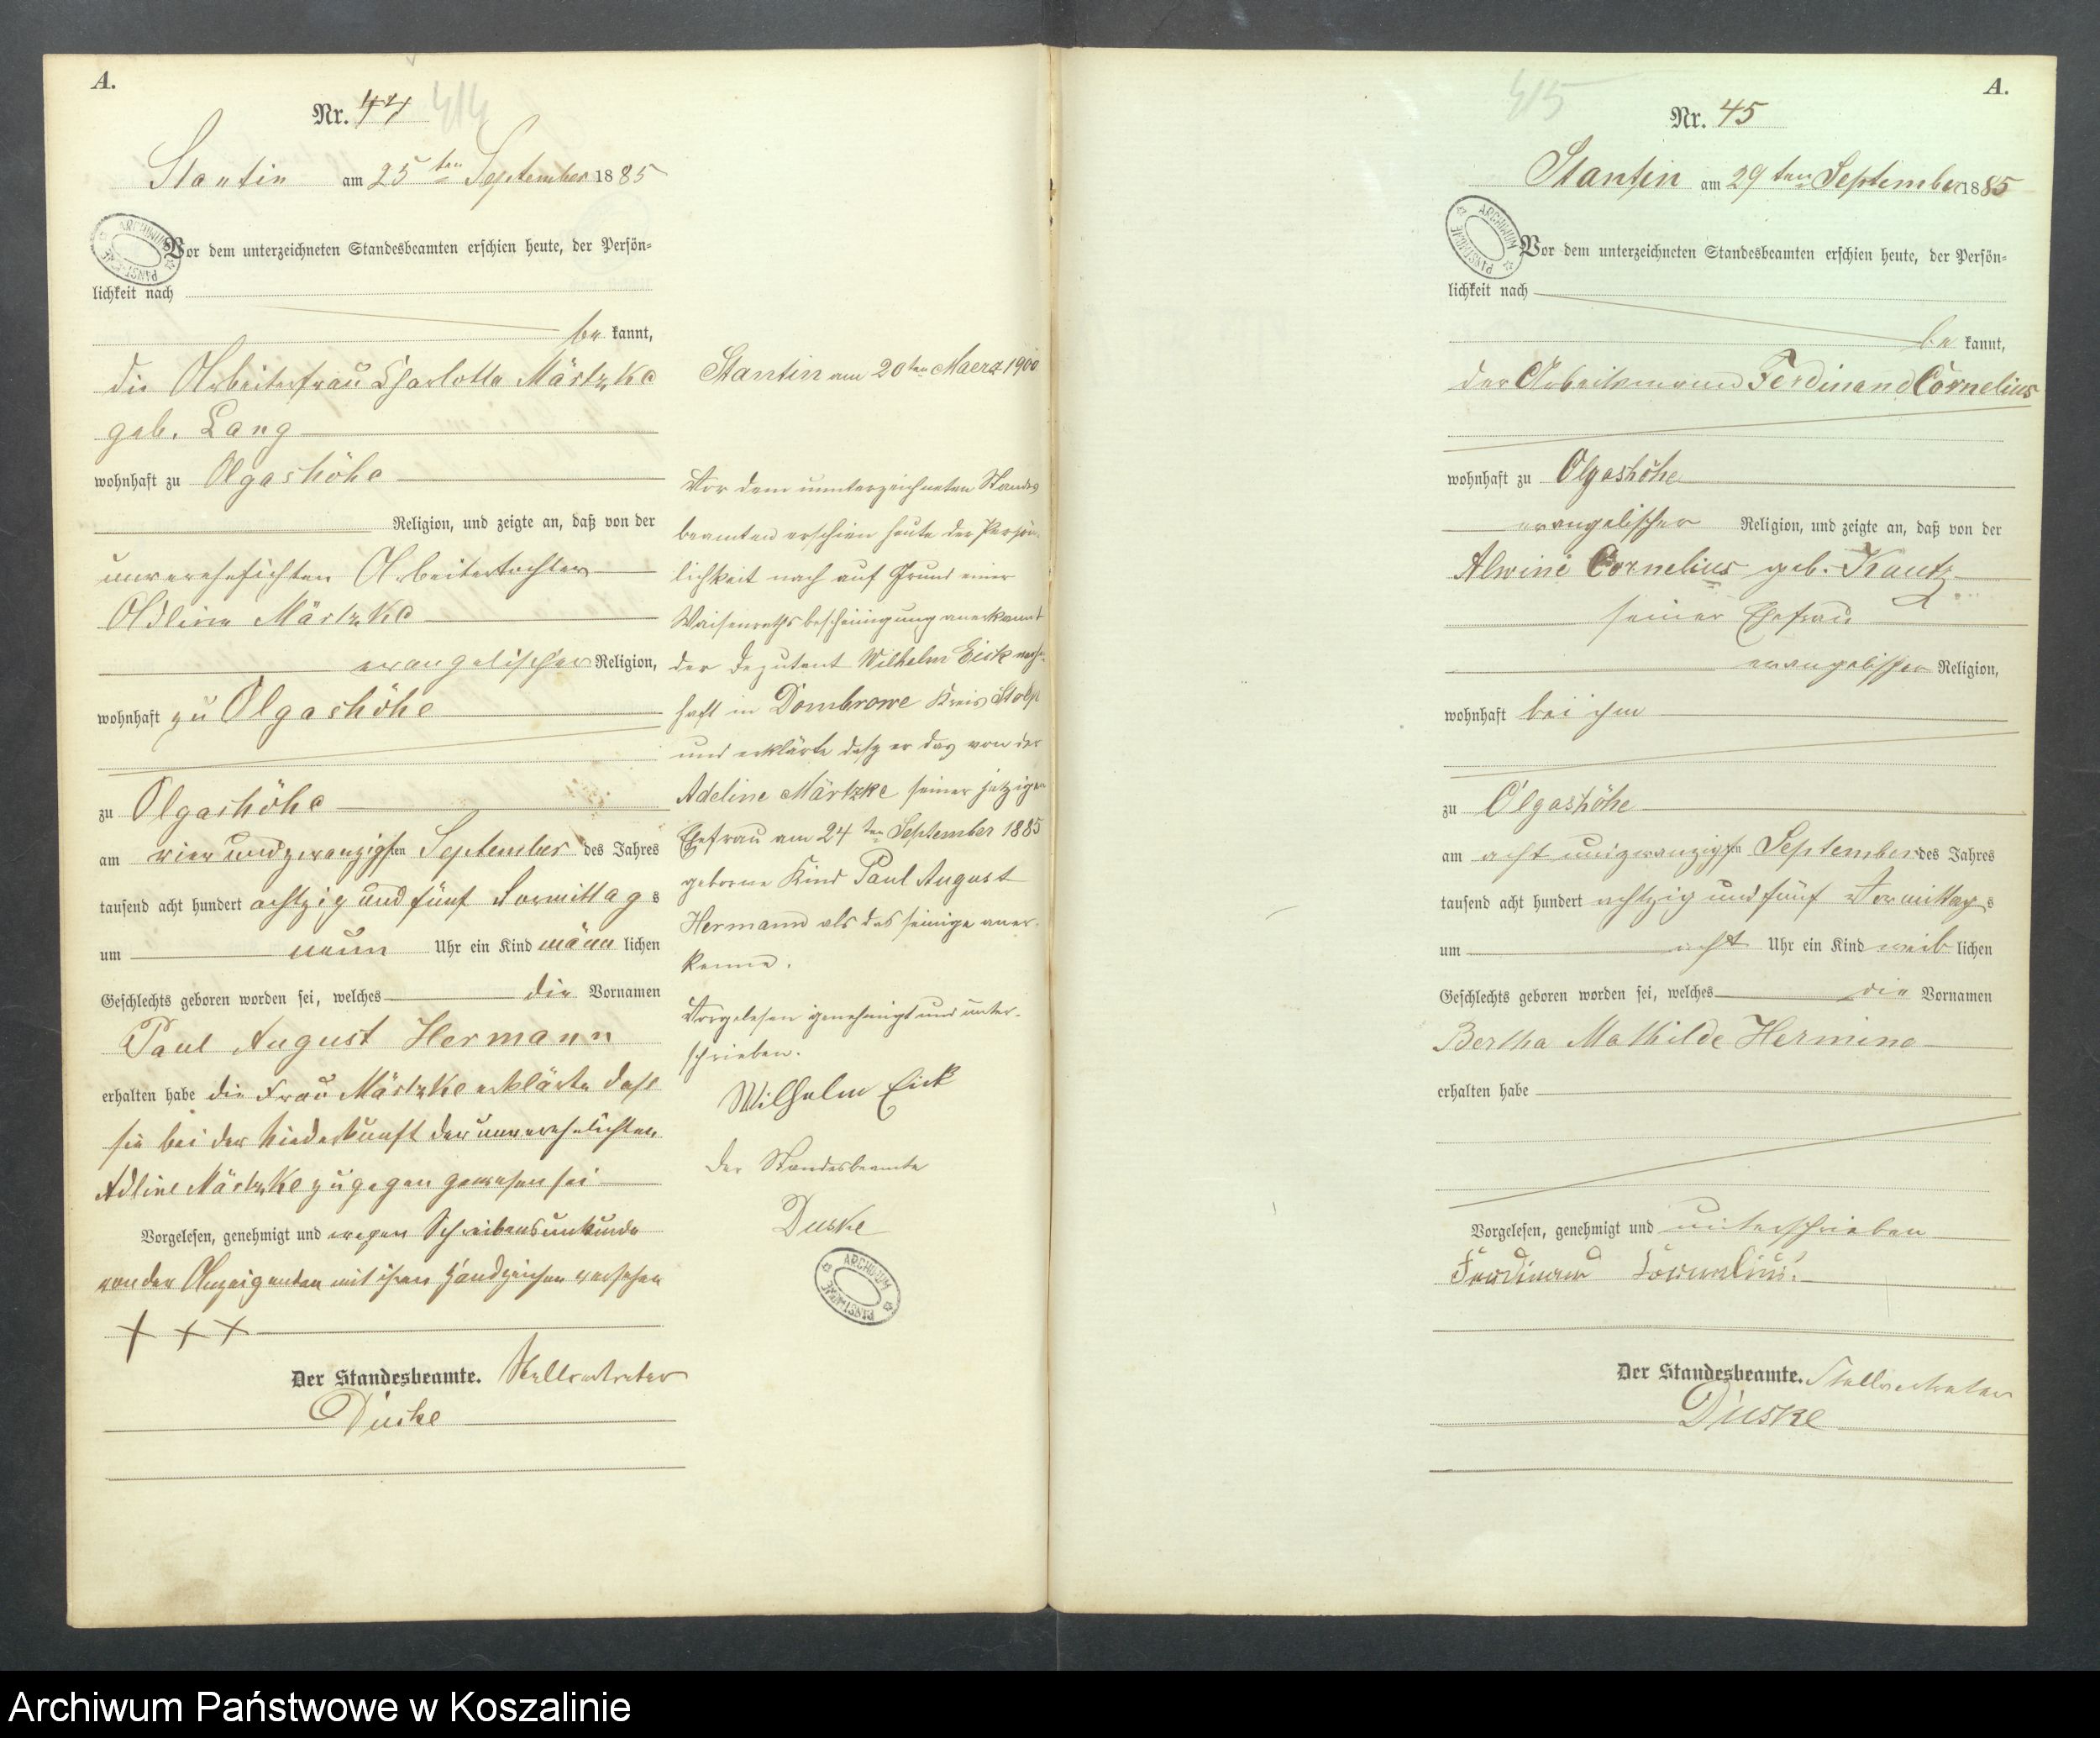 A.
Nr. 44
414
Stantin am 25ten September 1885
ARCHIWUM PAŃSTWOWE
Vor dem unterzeichneten Standesbeamten erschien heute, der Persön-
lichkeit nach
be kannt,
die Arbeiterfrau Charlotte Märtzke
geb. Lang
wohnhaft zu Olgashöhe
Religion, und zeigte an, daß von der
unverehelichten Arbeitertochter
Adline Märtzke
evangelischer Religion,
wohnhaft zu Olgashöhe
zu Olgashöhe
am vier und zwanzigsten September des Jahres
tausend acht hundert achtzig und fünf Vormittags
um neun Uhr ein Kind männlichen
Geschlechts geboren worden sei, welches die Vornamen
Paul August Hermann
erhalten habe die Frau Märtzke erklärte daß
sie bei der Niederkunft der unverehelichten
Adline Märtzke zugegen gewesen sei
Vorgelesen, genehmigt und wegen Schreibensunkunde
von der Anzeigenden mit ihren Handzeichen versehen
+ + +
Der Standesbeamte. Stellvertreter
Duske
Stantin am 20ten Maerz 1900
Vor dem unterzeichneten Standes
beamten erschien heute der Persön-
lichkeit nach auf Grund einer
Waisenrathsbescheinigung anerkannt
der Deputant Wilhelm Eick wohn-
haft in Dombrowe Kreis Stolp
und erklärte daß er das von der
Adeline Märtzke seiner jetzigen
Ehefrau am 24ten September 1885
geborene Kind Paul August
Hermann als das seinige aner-
kenne.
Vorgelesen genehmigt und unter-
schrieben.
Wilhelm Eick
Der Standesbeamte
Duske
ARCHIWUM PAŃSTWOWE
A.
415
Nr. 45
Stantin am 29ten September 1885
ARCHIWUM PAŃSTWOWE
Vor dem unterzeichneten Standesbeamten erschien heute, der Persön-
lichkeit nach
be kannt,
der Arbeitsmann Ferdinand Cornelius
wohnhaft zu Olgashöhe
evangelischer Religion, und zeigte an, daß von der
Alwine Cornelius geb. Kautz
seiner Ehefrau
evangelischer Religion,
wohnhaft bei ihm
zu Olgashöhe
am acht und zwanzigsten September des Jahres
tausend acht hundert achtzig und fünf Vormittags
um acht Uhr ein Kind weiblichen
Geschlechts geboren worden sei, welches die Vornamen
Bertha Mathilde Hermine
erhalten habe
Vorgelesen, genehmigt und unterschrieben
Ferdinand Cornelius.
Der Standesbeamte. Stellvertreter
Duske
Archiwum Państwowe w Koszalinie